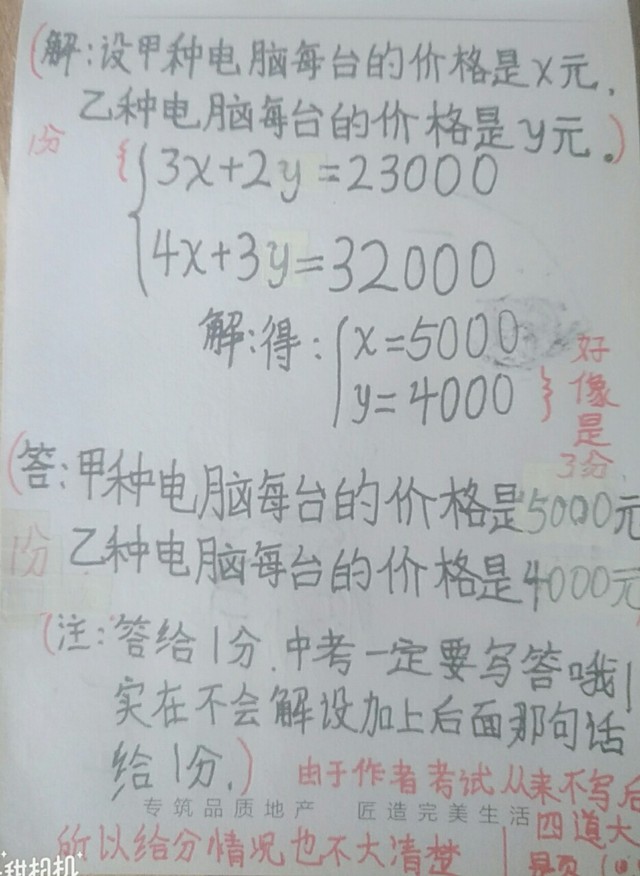 (解:设甲种电脑每台的价格是x元,
乙种电脑每台的价格是y元。)
1分
{3x+2y=23000
4x+3y=32000
解:得:{x=5000
y=4000
}好像是3分
(答:甲种电脑每台的价格是5000元
1分
乙种电脑每台的价格是4000元
(注:答给1分.中考一定要写答哦!
实在不会解设加上后面那句话
给1分.)
由于作者考试从来不写后
四道大
专筑品质地产 匠造完美生活
所以给分情况也不大清楚
甜相机